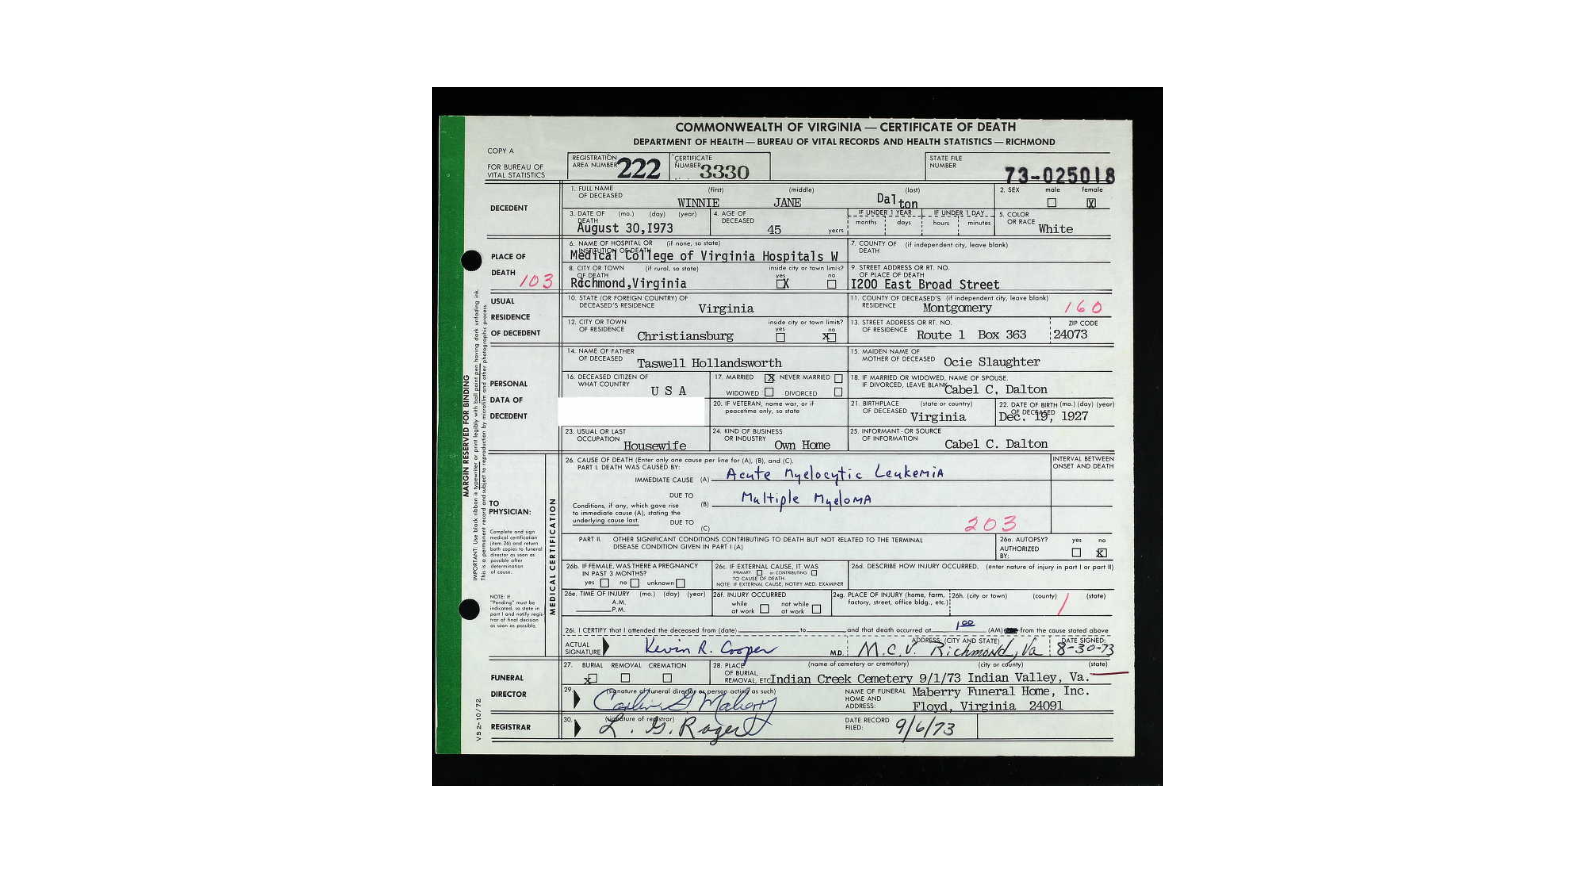 COMMONWEALTH OF VIRGINIA — CERTIFICATE OF DEATH
DEPARTMENT OF HEALTH — BUREAU OF VITAL RECORDS AND HEALTH STATISTICS — RICHMOND
COPY A
FOR BUREAU OF VITAL STATISTICS
REGISTRATION AREA NUMBER 222 CERTIFICATE NUMBER 3330 STATE FILE NUMBER 73-025018
DECEDENT
1. FULL NAME OF DECEASED (first) (middle) (last) 2. SEX male female
WINNIE JANE Dalton X
3. DATE OF DEATH (mo.) (day) (year) 4. AGE OF DECEASED IF UNDER 1 YEAR IF UNDER 1 DAY 5. COLOR OR RACE
August 30,I973 45 years months days hours minutes White
PLACE OF DEATH 103
6. NAME OF HOSPITAL OR INSTITUTION OF DEATH (if none, so state) 7. COUNTY OF DEATH (if independent city, leave blank)
Medical College of Virginia Hospitals W
8. CITY OR TOWN OF DEATH (if rural, so state) inside city or town limits? yes no 9. STREET ADDRESS OR RT. NO. OF PLACE OF DEATH
Richmond,Virginia X I200 East Broad Street
USUAL RESIDENCE OF DECEDENT
10. STATE (OR FOREIGN COUNTRY) OF DECEASED'S RESIDENCE 11. COUNTY OF DECEASED'S RESIDENCE (if independent city, leave blank)
Virginia Montgomery 160
12. CITY OR TOWN OF RESIDENCE inside city or town limits? yes no 13. STREET ADDRESS OR RT. NO. OF RESIDENCE ZIP CODE
Christiansburg X Route 1 Box 363 24073
PERSONAL DATA OF DECEDENT
14. NAME OF FATHER OF DECEASED 15. MAIDEN NAME OF MOTHER OF DECEASED
Taswell Hollandsworth Ocie Slaughter
16. DECEASED CITIZEN OF WHAT COUNTRY 17. MARRIED X NEVER MARRIED WIDOWED DIVORCED 18. IF MARRIED OR WIDOWED, NAME OF SPOUSE. IF DIVORCED, LEAVE BLANK
U S A Cabel C. Dalton
20. IF VETERAN, name war, or if peacetime only, so state 21. BIRTHPLACE OF DECEASED (state or country) 22. DATE OF BIRTH OF DECEASED (mo.) (day) (year)
Virginia Dec. 19, 1927
23. USUAL OR LAST OCCUPATION 24. KIND OF BUSINESS OR INDUSTRY 25. INFORMANT - OR SOURCE OF INFORMATION
Housewife Own Home Cabel C. Dalton
MARGIN RESERVED FOR BINDING
TO PHYSICIAN:
Complete and sign medical certification (item 26) and return both copies to funeral director as soon as possible after determination of cause.
NOTE: If "Pending" must be indicated, so state in part I and notify registrar of final decision as soon as possible.
MEDICAL CERTIFICATION
26. CAUSE OF DEATH (Enter only one cause per line for (A), (B), and (C). INTERVAL BETWEEN ONSET AND DEATH
PART I. DEATH WAS CAUSED BY:
IMMEDIATE CAUSE (A) Acute Myelocytic Leukemia
DUE TO
Conditions, if any, which gave rise to immediate cause (A), stating the underlying cause last. (B) Multiple Myeloma
DUE TO (C) 203
PART II. OTHER SIGNIFICANT CONDITIONS CONTRIBUTING TO DEATH BUT NOT RELATED TO THE TERMINAL DISEASE CONDITION GIVEN IN PART I (A) 26a. AUTOPSY? yes no AUTHORIZED BY: X
26b. IF FEMALE, WAS THERE A PREGNANCY IN PAST 3 MONTHS? yes no unknown
26c. IF EXTERNAL CAUSE, IT WAS PRIMARY or CONTRIBUTING TO CAUSE OF DEATH NOTE: IF EXTERNAL CAUSE, NOTIFY MED. EXAMINER
26d. DESCRIBE HOW INJURY OCCURRED. (enter nature of injury in part I or part II)
26e. TIME OF INJURY (mo.) (day) (year) A.M. P.M.
26f. INJURY OCCURRED while at work not while at work
26g. PLACE OF INJURY (home, farm, factory, street, office bldg., etc.)
26h. (city or town) (county) (state)
26i. I CERTIFY that I attended the deceased from (date) to and that death occurred at 1:00 (AM) from the cause stated above
ACTUAL SIGNATURE Kevin R. Cooper M.D. ADDRESS: (CITY AND STATE) M.C.V. Richmond, Va DATE SIGNED: 8-30-73
FUNERAL DIRECTOR
27. BURIAL REMOVAL CREMATION X
28. PLACE OF BURIAL REMOVAL, ETC. (name of cemetery or crematory) (city or county) (state)
Indian Creek Cemetery 9/1/73 Indian Valley, Va.
29. (signature of funeral director or person acting as such) NAME OF FUNERAL HOME AND ADDRESS: Maberry Funeral Home, Inc.
Floyd, Virginia 24091
REGISTRAR
30. (signature of registrar) DATE RECORD FILED: 9/6/73
VS 2-10/72